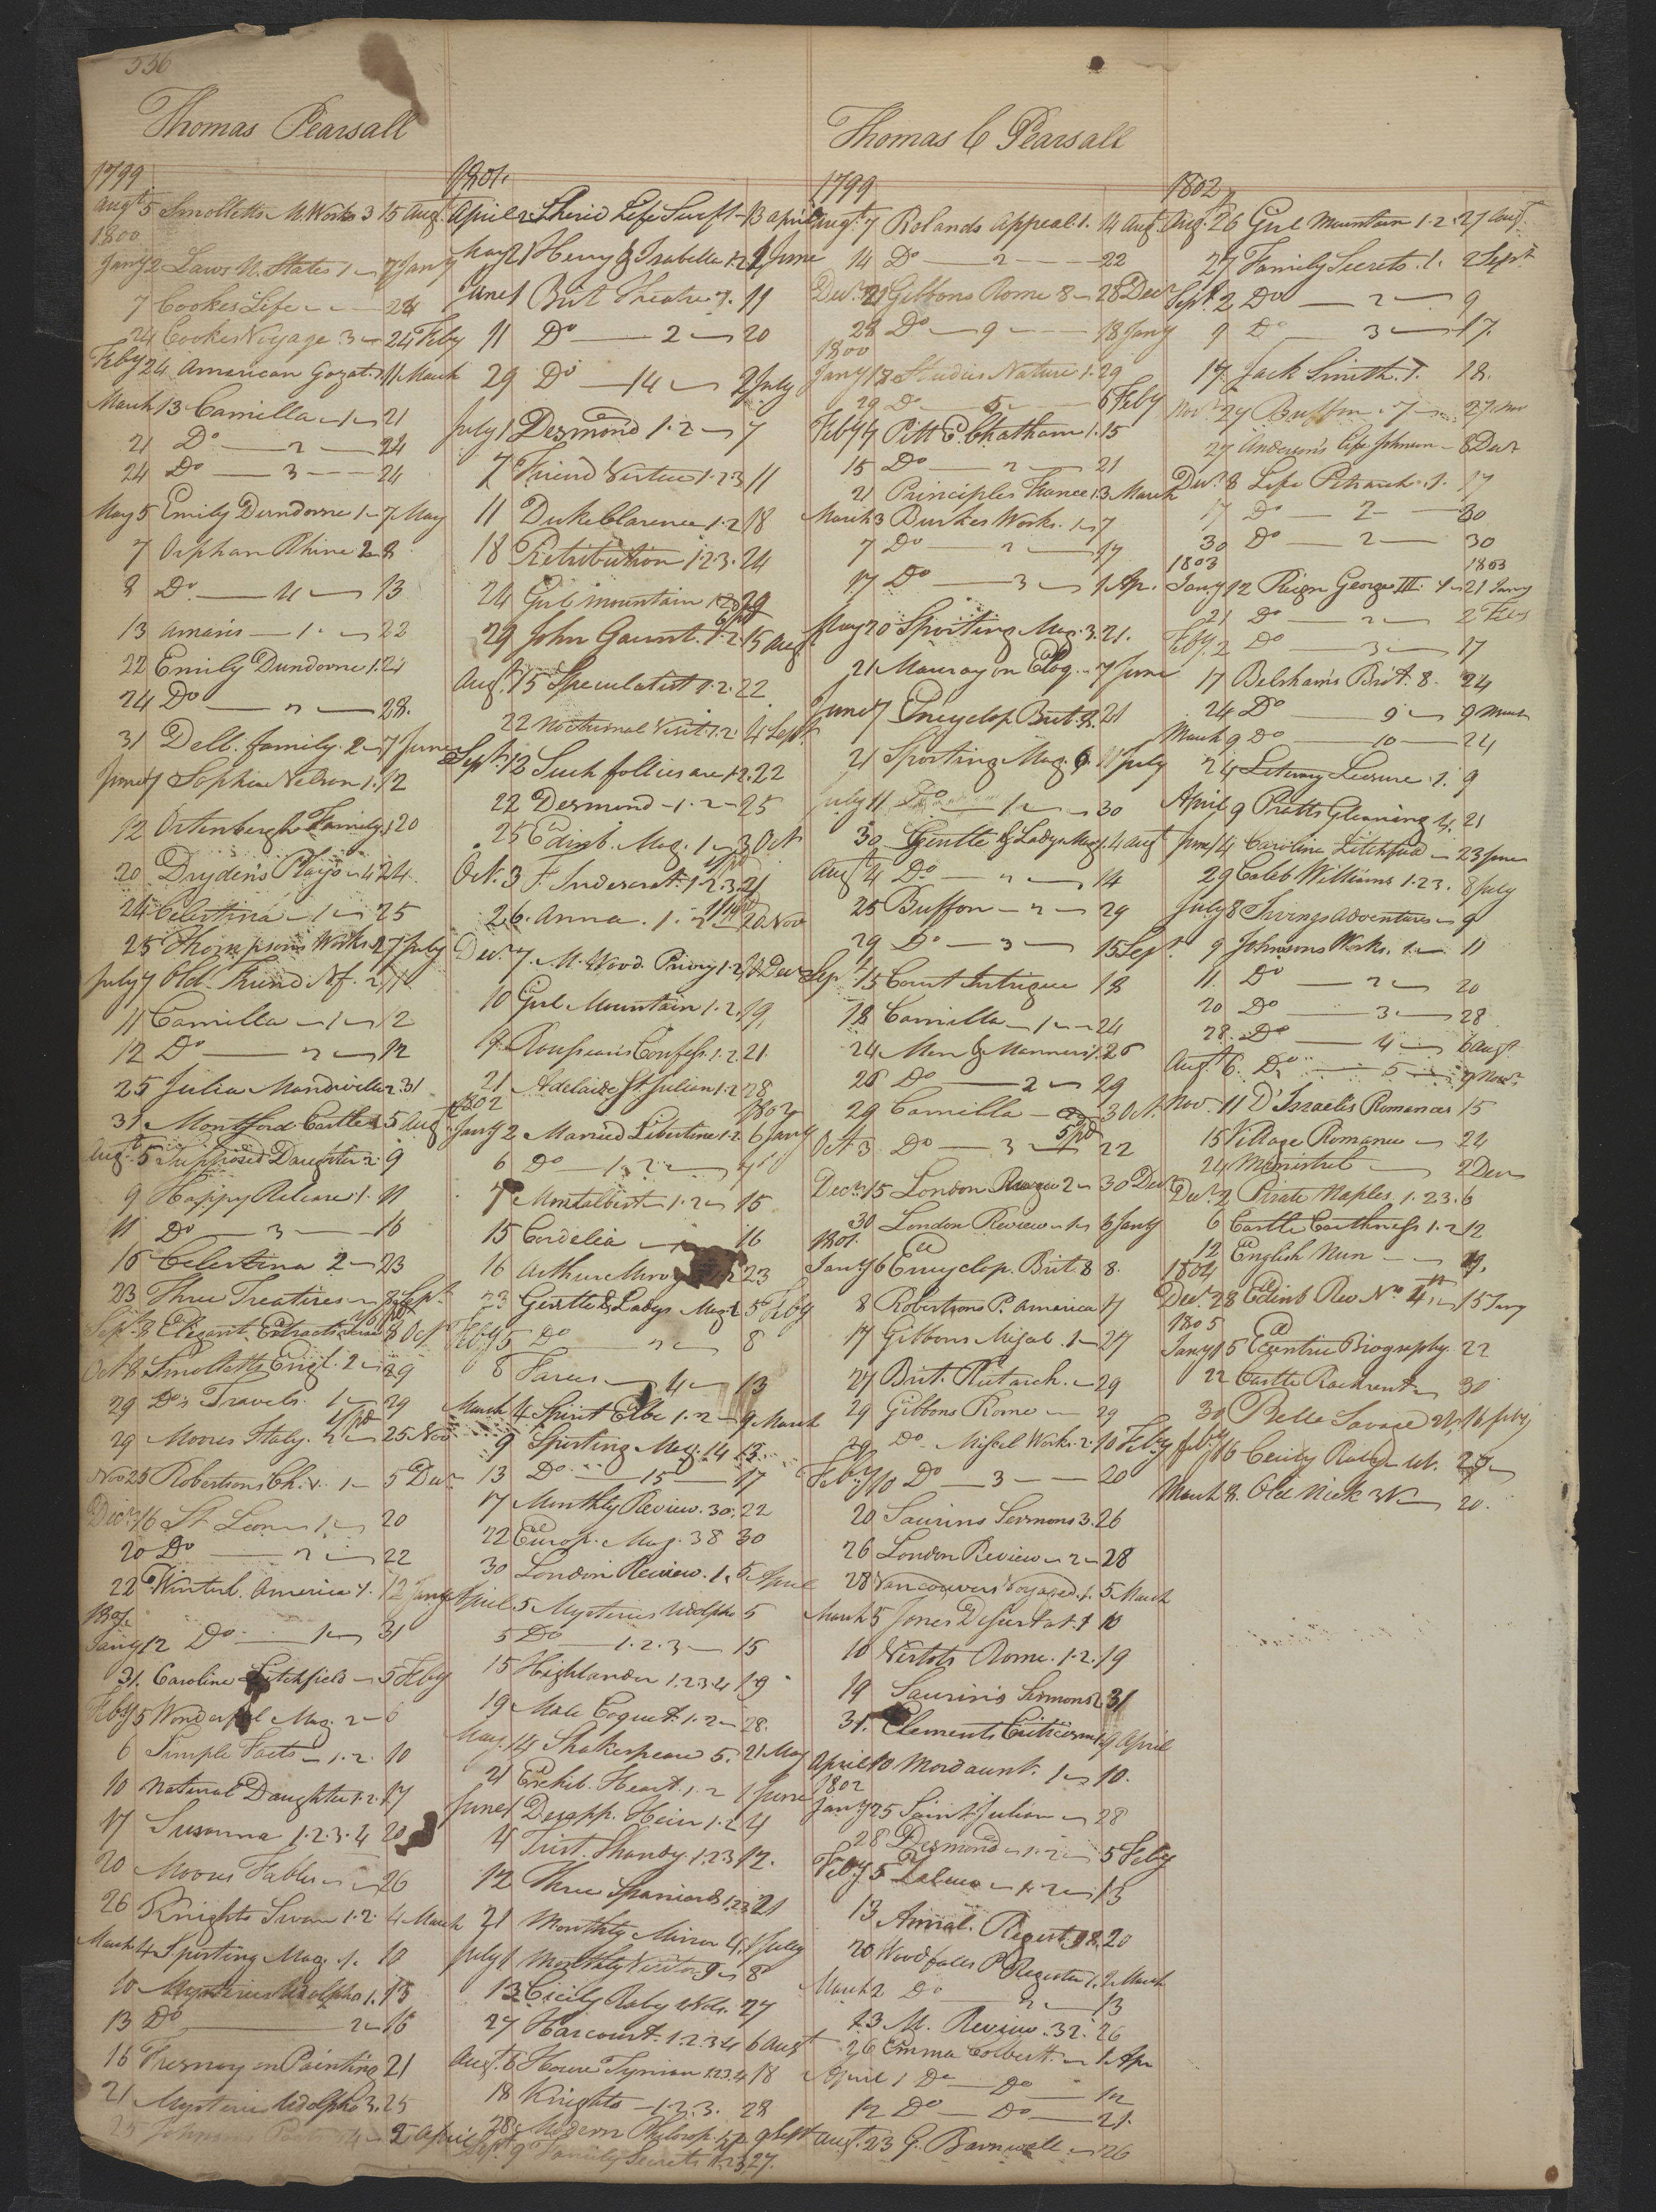 336
Thomas Pearsall
1799
Augt 5 Smolletts M. Works 3 15 Aug.
1800
Jany 2 Laws U. States 1 7 Jany
7 Cookes Life 24
24 Cookes Voyage 3 24 Feby
Feby 24 American Gazet. 11 March
March 13 Camilla 1 21
21 Do 2 24
24 Do 3 24
May 5 Emily Dundorne 1 7 May
7 Orphan Rhine 2 8
8 Do 4 13
13 Amaris 1. 22
22 Emily Dundorne 1. 24
24 Do 2 28.
31 Dell. family. 2 7 June
June 7 Sophia Nelson 1. 12
12 Ortenbergh Family 1 20
20 Drydens Plays 4 24.
24 Celestina 1 25
25 Thompsons Works 2 7 July
July 7 Old Friend Nf. 2 11
11 Camilla 1 12
12 Do 2 12
25 Julia Mandeville 2 31
31 Montford Castle 1 5 Aug
Aug. 5 Supposed Daughter 2. 9
9 Happy Release 1. 11
11 Do 3 16
16 Celestina 2 23
23 Three Treatises 8 Sept.
Sept. 8 Elegant Extracts 8 Oct
Oct 8 Smolletts Engl. 2 29
29 Do Travels. 1 29
29 Moores Italy. 2 25 Nov
Nov 25 Robertsons Ch. V. 1 5 Decr
Decr 16 St Leon 1 20
20 Do 2 22
22 Winterb. America 1. 12 Jany
1801.
Jany 12 Do 1 31
31. Caroline Litchfield 5 Feby
Feby 5 Wonderful Mag. 2 6
6 Simple Facts 1.2. 10
10 Natural Daughter 1.2. 17
17 Susanna 1.2.3.4 20
20 Moores Fables 26
26 Knights Swan 1.2. 4 March
March 4 Sporting Mag. 1. 10
10 Mysteries Udolpho 1. 13
13 Do 2 16
16 Fresnoy on Painting 21
21 Mysteries Udolpho 3. 25
25 Johnsons 2 April
1801.
April 2 Sherid Life Swift 13 April
May 21 Henry & Isabella 1.2 1 June
June 1 Brit Theatre 1. 11
11 Do 2 20
29 Do 14 2 July
July 1 Desmond 1.2 7
7 Friend Virtue 1.2.3 11
11 Duke Clarence 1.2 18
18 Retribution 1.2.3. 24
24 Girl Mountain 1.2 29
29 John Gaunt. 1.2. 15 Aug
Augt. 15 Speculatist 1.2. 22
22 Nocturnal Visit. 1.2. 4 Sept.
Septr. 12 Such follies are 1.2. 22
22 Desmond 1.2 25
25 Edinb. Mag. 1 3 Oct
Oct. 3 F. Indescret. 1.2.3. 21
26. Anna. 1. 2 20 Nov
Decr. 7. M. Wood Priory 1.2 10 Decr
10 Girl Mountain 1.2. 19.
19. Rousseaus Confess. 1.2. 21
21 Adelaide St Julian 1.2 28
1802 1802
Jany 2 Married Libertine 1.2 6 Jany
6 Do 1.2. 7
7 Montalbert 1.2 15
15 Cordelia 16
16 Arthur Mervyn 1.2 23
23 Gentle & Ladys Mag. 1 5 Feby
Feby 5 Do 2 8
8 Farces 4 13
March 4 Spirit Elbe 1.2 9 March
9 Sporting Mag. 14 13
13 Do 15 17
17 Monthly Review. 30. 22
22 Europ. Mag. 38 30
30 London Review. 1. 5 April
April 5 Mysteries Udolpho 5
5 Do 1.2.3 15
15 Highlander 1.2.3.4 19
19 Male Coquet. 1.2 28.
May. 14 Shakespeare 5. 21 May
21 Exhib. Heart. 1.2 1 June
June 1 Desapp. Heir 1.2 4
4 Trist. Shandy. 1.2.3 12.
12 Three Spaniards 1.2.3 21
21 Monthly Mirror 4. 1 July
July 1 Monthly Visitor 9 8
13 Cicily Raby 27
27 Harcourt. 1.2.3.4 6 Augt
Augt. 6 House Tynian 1.2.3.4 18
18 Knights 1.2.3. 28
28 Modern Philosop. 1.2 9 Sept
Sept. 9 Family Secrets 1.2.3. 27.
Thomas C Pearsall
1799
Augt. 7 Rolands Appeal. 1. 14 Aug.
14 Do 2 22
Decr. 21 Gibbons Rome 8 28 Decr
28 Do 9 18 Jany
1800
Jany 18 Studies Nature 1. 29
29 Do 5 6 Feby
Feby 7 Pitt E. Chatham 1. 15
15 Do 2 21
21 Principles France 1. 3 March
March 3 Burkes Works. 1 7
7 Do 2 17
17 Do 3 1 Ap.
May 20 Sporting Mag. 3. 21.
21 Mauray on Eloq. 7 June
June 7 Encyclop. Brit. 21
21 Sporting Mag. 6 11 July
July 11 Do 1 30
30 Gentle & Ladys Mag. 1. 4 Augt
Augt. 4 Do 2 14
25 Buffon 2 29
29 Do 3 15 Sept.
Sept. 15 Court Intrigue 18
18 Camilla 1 24
24 Men & Manners 1. 26
26 Do 2 29
29 Camilla 2 3 Oct.
Oct 3 Do 3 22
Decr. 15 London Review 2 30 Decr
30 London Review 1 6 Jany
1801.
Jany 6 Encyclop. Brit 8 8.
8 Robertsons P. America 17
17 Gibbons Misol. 1 27
27 Brit. Plutarch. 29
29 Gibbons Rome 29
29 Do Misol Works. 2. 10 Feby
Feby 10 Do 3 20
20 Saurins Sermons 3. 26
26 London Review 2 28
28 Vancouvers Voyages. 1. 5 March
March 5 Jones Dissertat. 1 10
10 Vertots Rome. 1.2. 19
19 Saurins Sermons 2 31
31. Elements Criticism 1 9 April
April 10 Mordaunt. 1 10.
1802
Jany 25 Saint Julian 28
28 Desmond 1.2 5 Feby
Feby 5 Zeluco 1.2 13
13 Annal. Regist. 98. 20
20 Woodfalls P. Register 1. 2 March
March 2 Do 2 13
23 M. Review. 32. 26
26 Emma Corbett. 1 Apr
April 1 Do Do 12
12 Do Do 21.
Augt. 23 G. Barnwell 26
1802
Aug. 26 Girl Mountain 1.2. 27 Augt
27 Family Secrets. 1. 2 Sept
Sept. 2 Do 2 9
9 Do 3 17.
17. Jack Smith. 1. 18.
Novr. 27 Buffon. 7 27 Nov
27 Anderson's Life Johnson 8 Decr
Decr. 8 Life Petrarch. 1. 17
17 Do 2 30
30 Do 2 30
1803 1803
Jany 12 Reign George III. 1 21 Jany
21 Do 2 2 Feby
Feby. 2 Do 3 17
17 Belsham's Brit. 8. 24
24 Do 9 9 March
March 9 Do 10 24
24 Literary Leisure. 1. 9
April 9 Pratts Gleaning 4. 21
June 14 Caroline Litchfield 23 June
29 Caleb Williams 1.2.3. 8 July
July 8 Irvings Adventures 9
9 Johnsons Works. 1. 11
11. Do 2 20
20 Do 3 28
28. Do 4 6 Augt
Augt. 6. Do 5 9 Novr.
Nov. 11 D'Israelis Romances 15
15 Village Romance 24
24 Minstrel 2 Decr
Decr. 2 Pirate Naples. 1.2.3. 6
6 Castle Caithness 1.2 12
12 English Nun 19.
1804
Decr. 28 Edinb Rev No 4 15 Jany
1805
Jany 15 Eccentric Biography. 22
22 Castle Rackrent 30
30 Belle Savage 16 feby
feby 16 Cecily Raby 28
March 8. Old Nick 20.